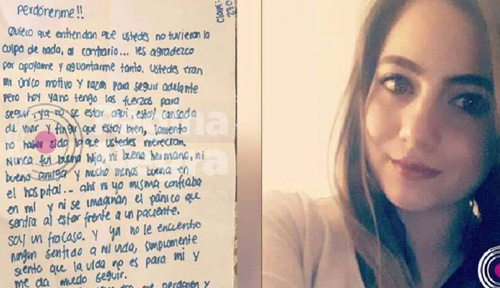 Perdónenme!!
Quiero que entiendan que ustedes no tuvieron la
culpa de nada, al contrario... les agradezco
por apoyarme y aguantarme tanto. Ustedes eran
mi único motivo y razón para seguir adelante
pero hoy ya no tengo las fuerzas para
seguir, ya no se estar aquí, estoy cansada
de vivir y fingir que estoy bien, lamento
no haber sido lo que ustedes merecían.
Nunca fui buena hija, ni buena hermana, ni
buena amiga y mucho menos buena en
el hospital... ahí ni yo misma confiaba
en mí y ni se imaginan el pánico que
sentía al estar frente a un paciente.
Soy un fracaso. Y ya no le encuentro
ningún sentido a mi vida, simplemente
siento que la vida no es para mí y
me da miedo seguir.
que me perdonen y